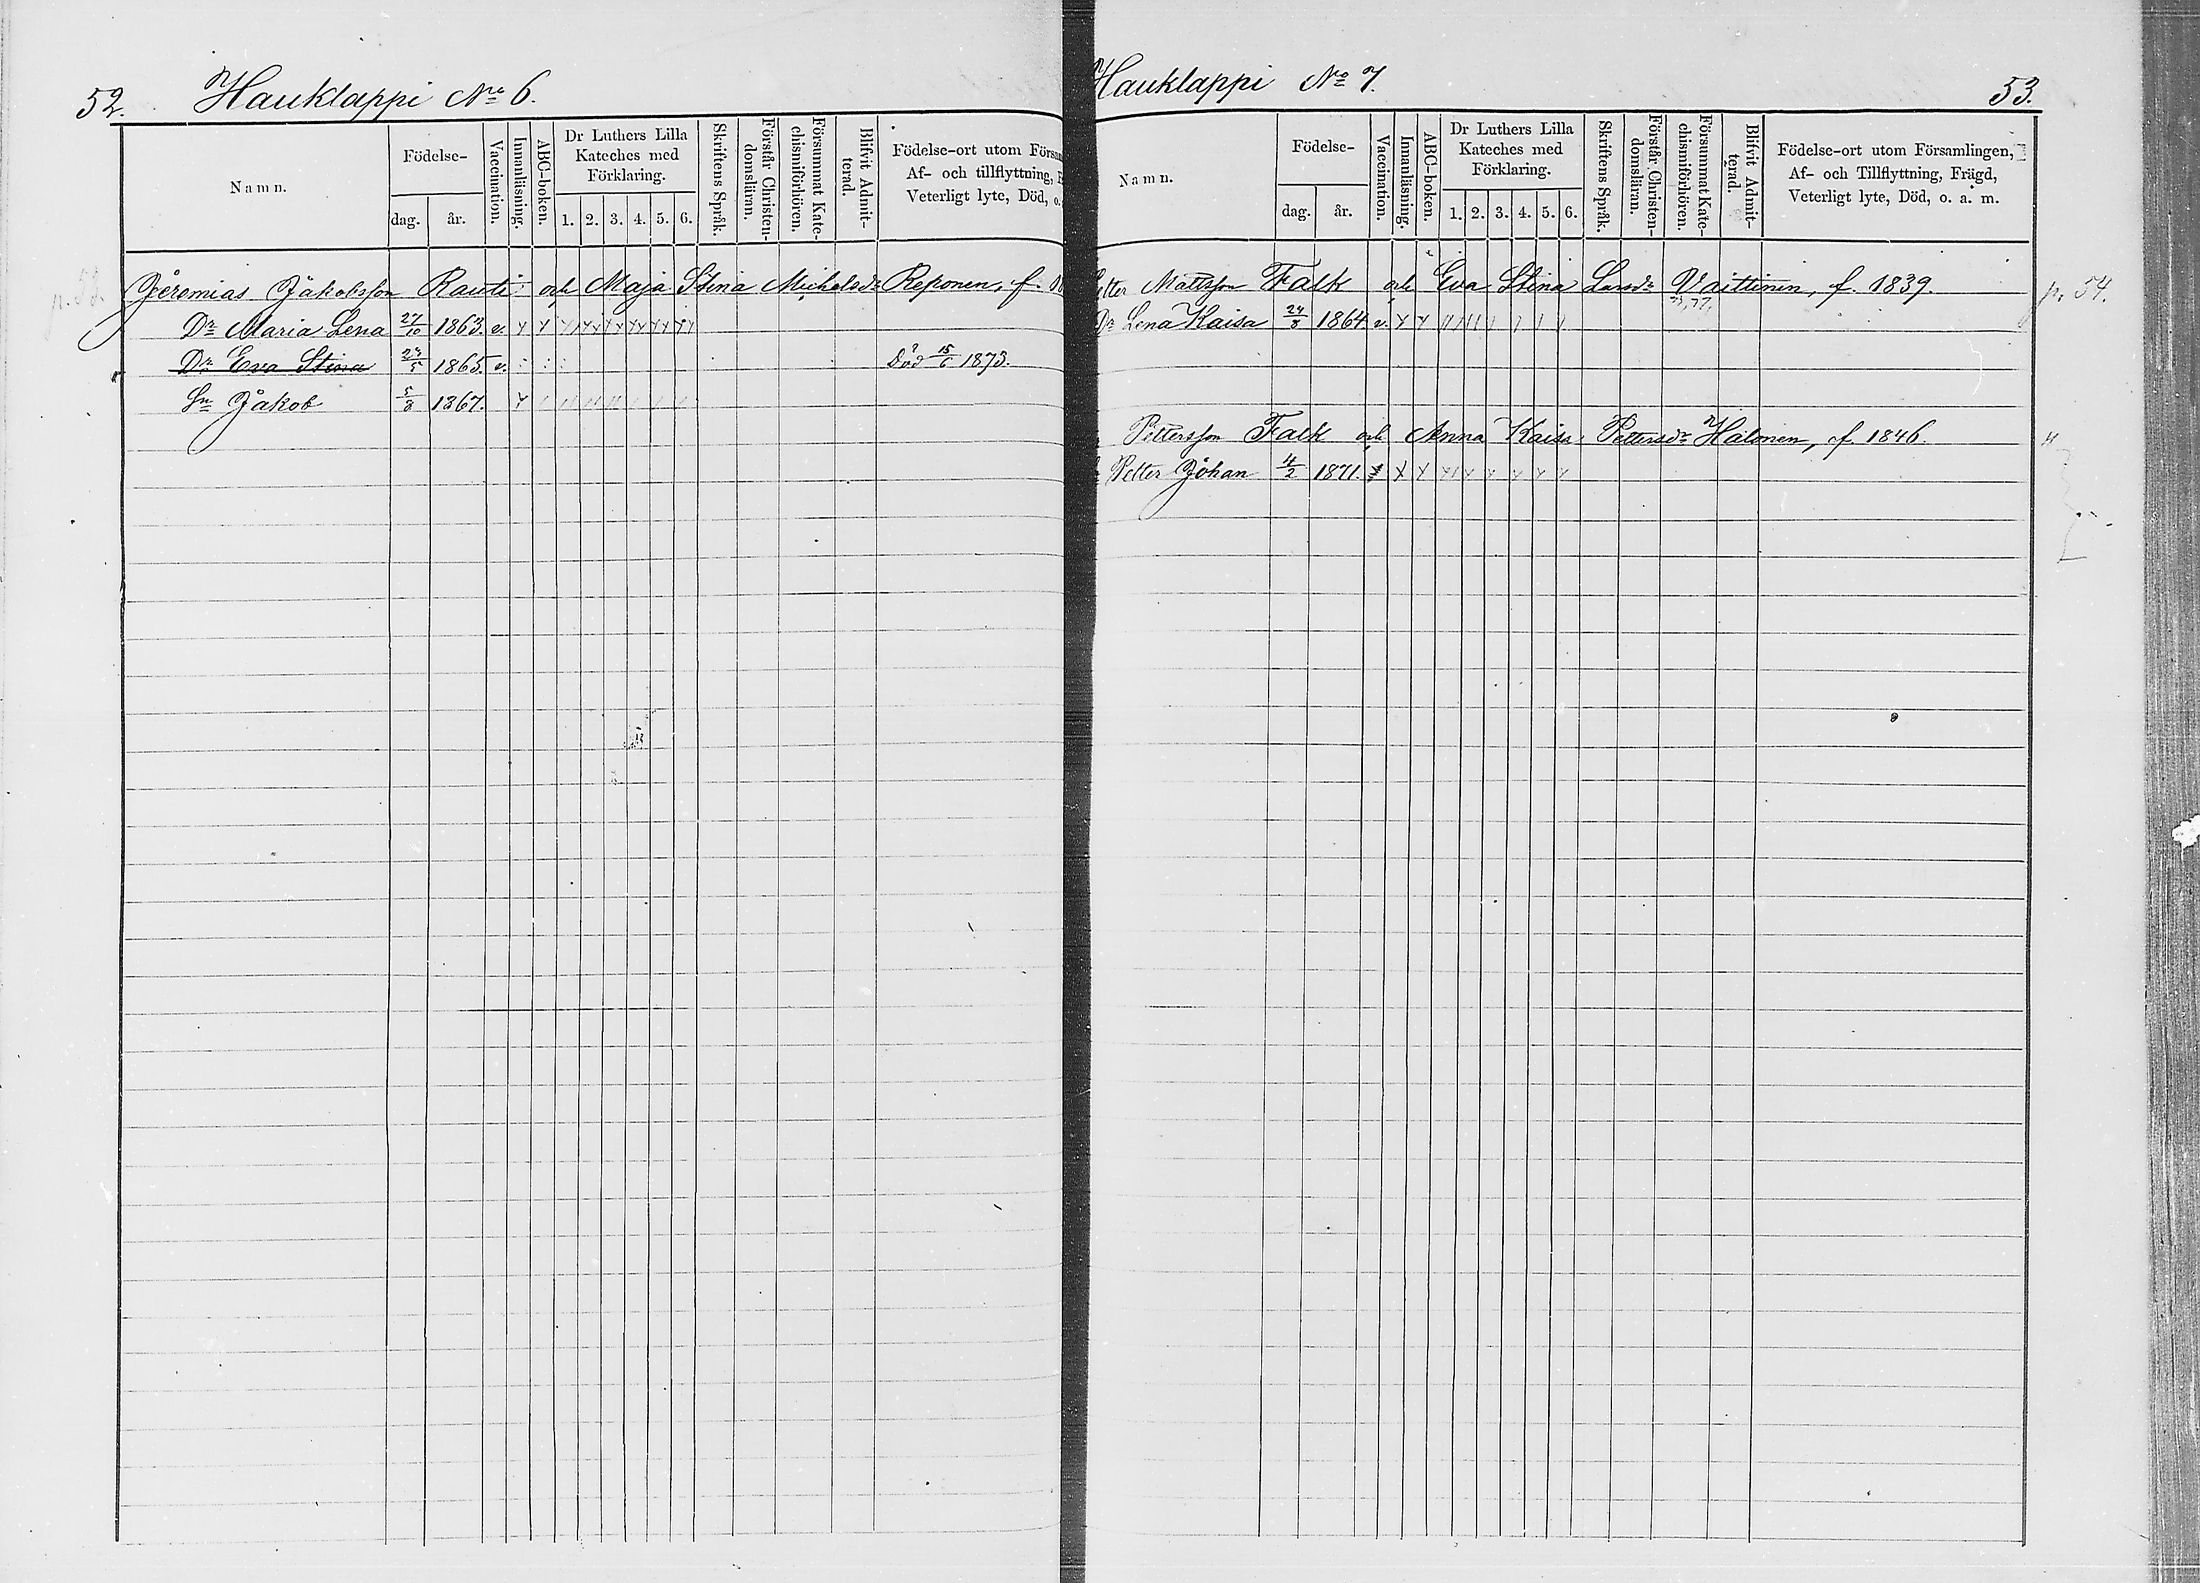 52. Hauklappi No 6.
Namn.
Födelse-
dag. år.
Vaccination.
Innanläsning.
ABC-boken.
Dr Luthers Lilla
Kateches med
Förklaring.
1. 2. 3. 4. 5. 6.
Skriftens Språk.
Förstår Christen-
domsläran.
Försummat Kate-
chismiförhören.
Blifvit Admit-
terad.
Födelse-ort utom Försam
Af- och tillflyttning,
Veterligt lyte, Död, o.
Jeremias Jakobsson Rauti och Maja Stina Michelsdr Reponen, f.
Dr Maria Lena 27/10 1863. v.
Dr Eva Stina 1865. v. Död 15/6 1873.
Sn Jakob 5/8 1867.
Hauklappi No 7. 53.
Namn.
Födelse-
dag. år.
Vaccination.
Innanläsning.
ABC-boken.
Dr Luthers Lilla
Kateches med
Förklaring.
1. 2. 3. 4. 5. 6.
Skriftens Språk.
Förstår Christen-
domsläran.
Försummat Kate-
chismiförhören.
Blifvit Admit-
terad.
Födelse-ort utom Församlingen,
Af- och Tillflyttning, Frägd,
Veterligt lyte, Död, o. a. m.
etter Mattsson Falk och Eva Stina Larsdr Vaittinen, f. 1839. p. 54.
Dr Lena Kaisa 24/8 1864 v.
Pettersson Falk och Anna Kaisa Pettersdr Halonen, f. 1846. "
Petter Johan 4/2 1871.